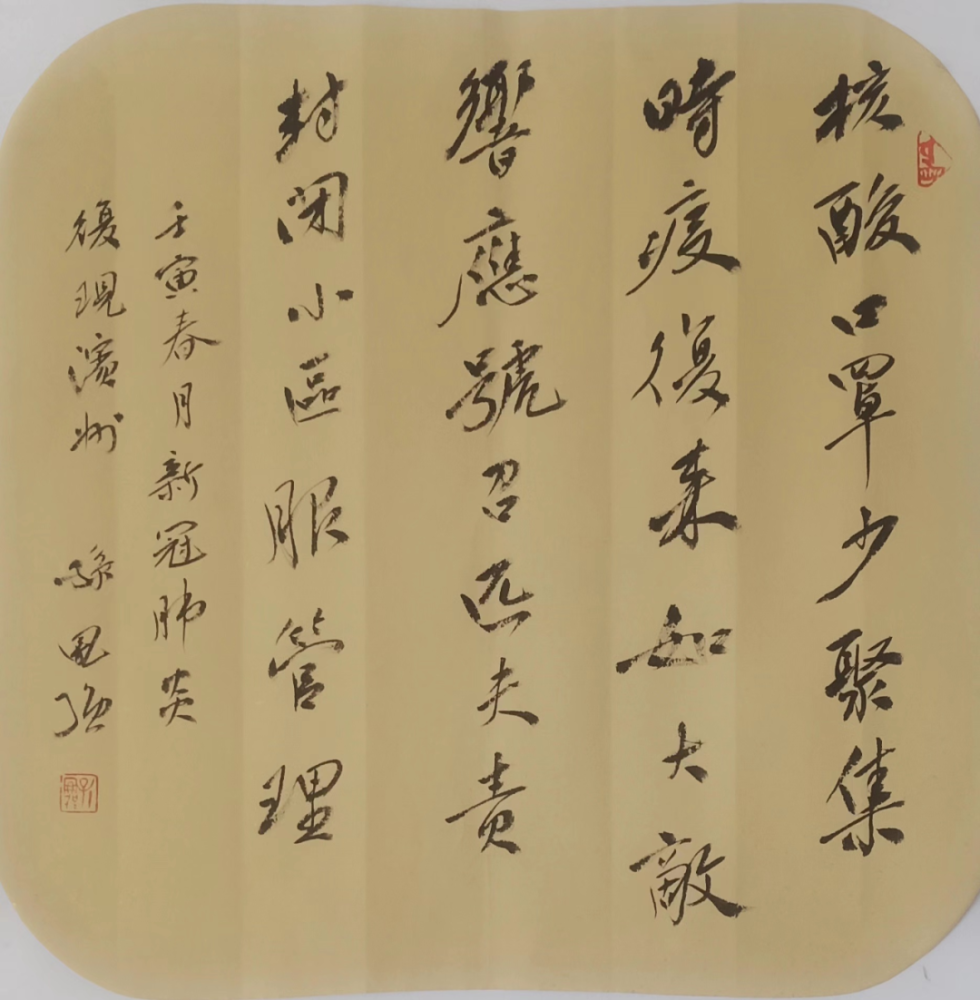 核酸口罩少聚集
時疫復來如大敵
響應號召匹夫責
封閉小區服管理
壬寅春月新冠肺炎
復現濱州 孫思強